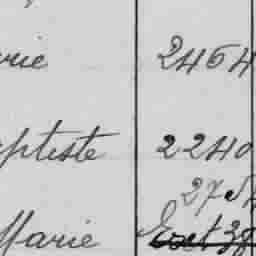 rie 2454
ptiste 2240
275
Marie